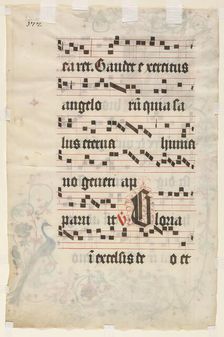 372
ea ret. Gaudet exercitus
angelo rū quia sa
lus eterna huma
no generi ap
paru it v Gloria
ī excelsis de o et